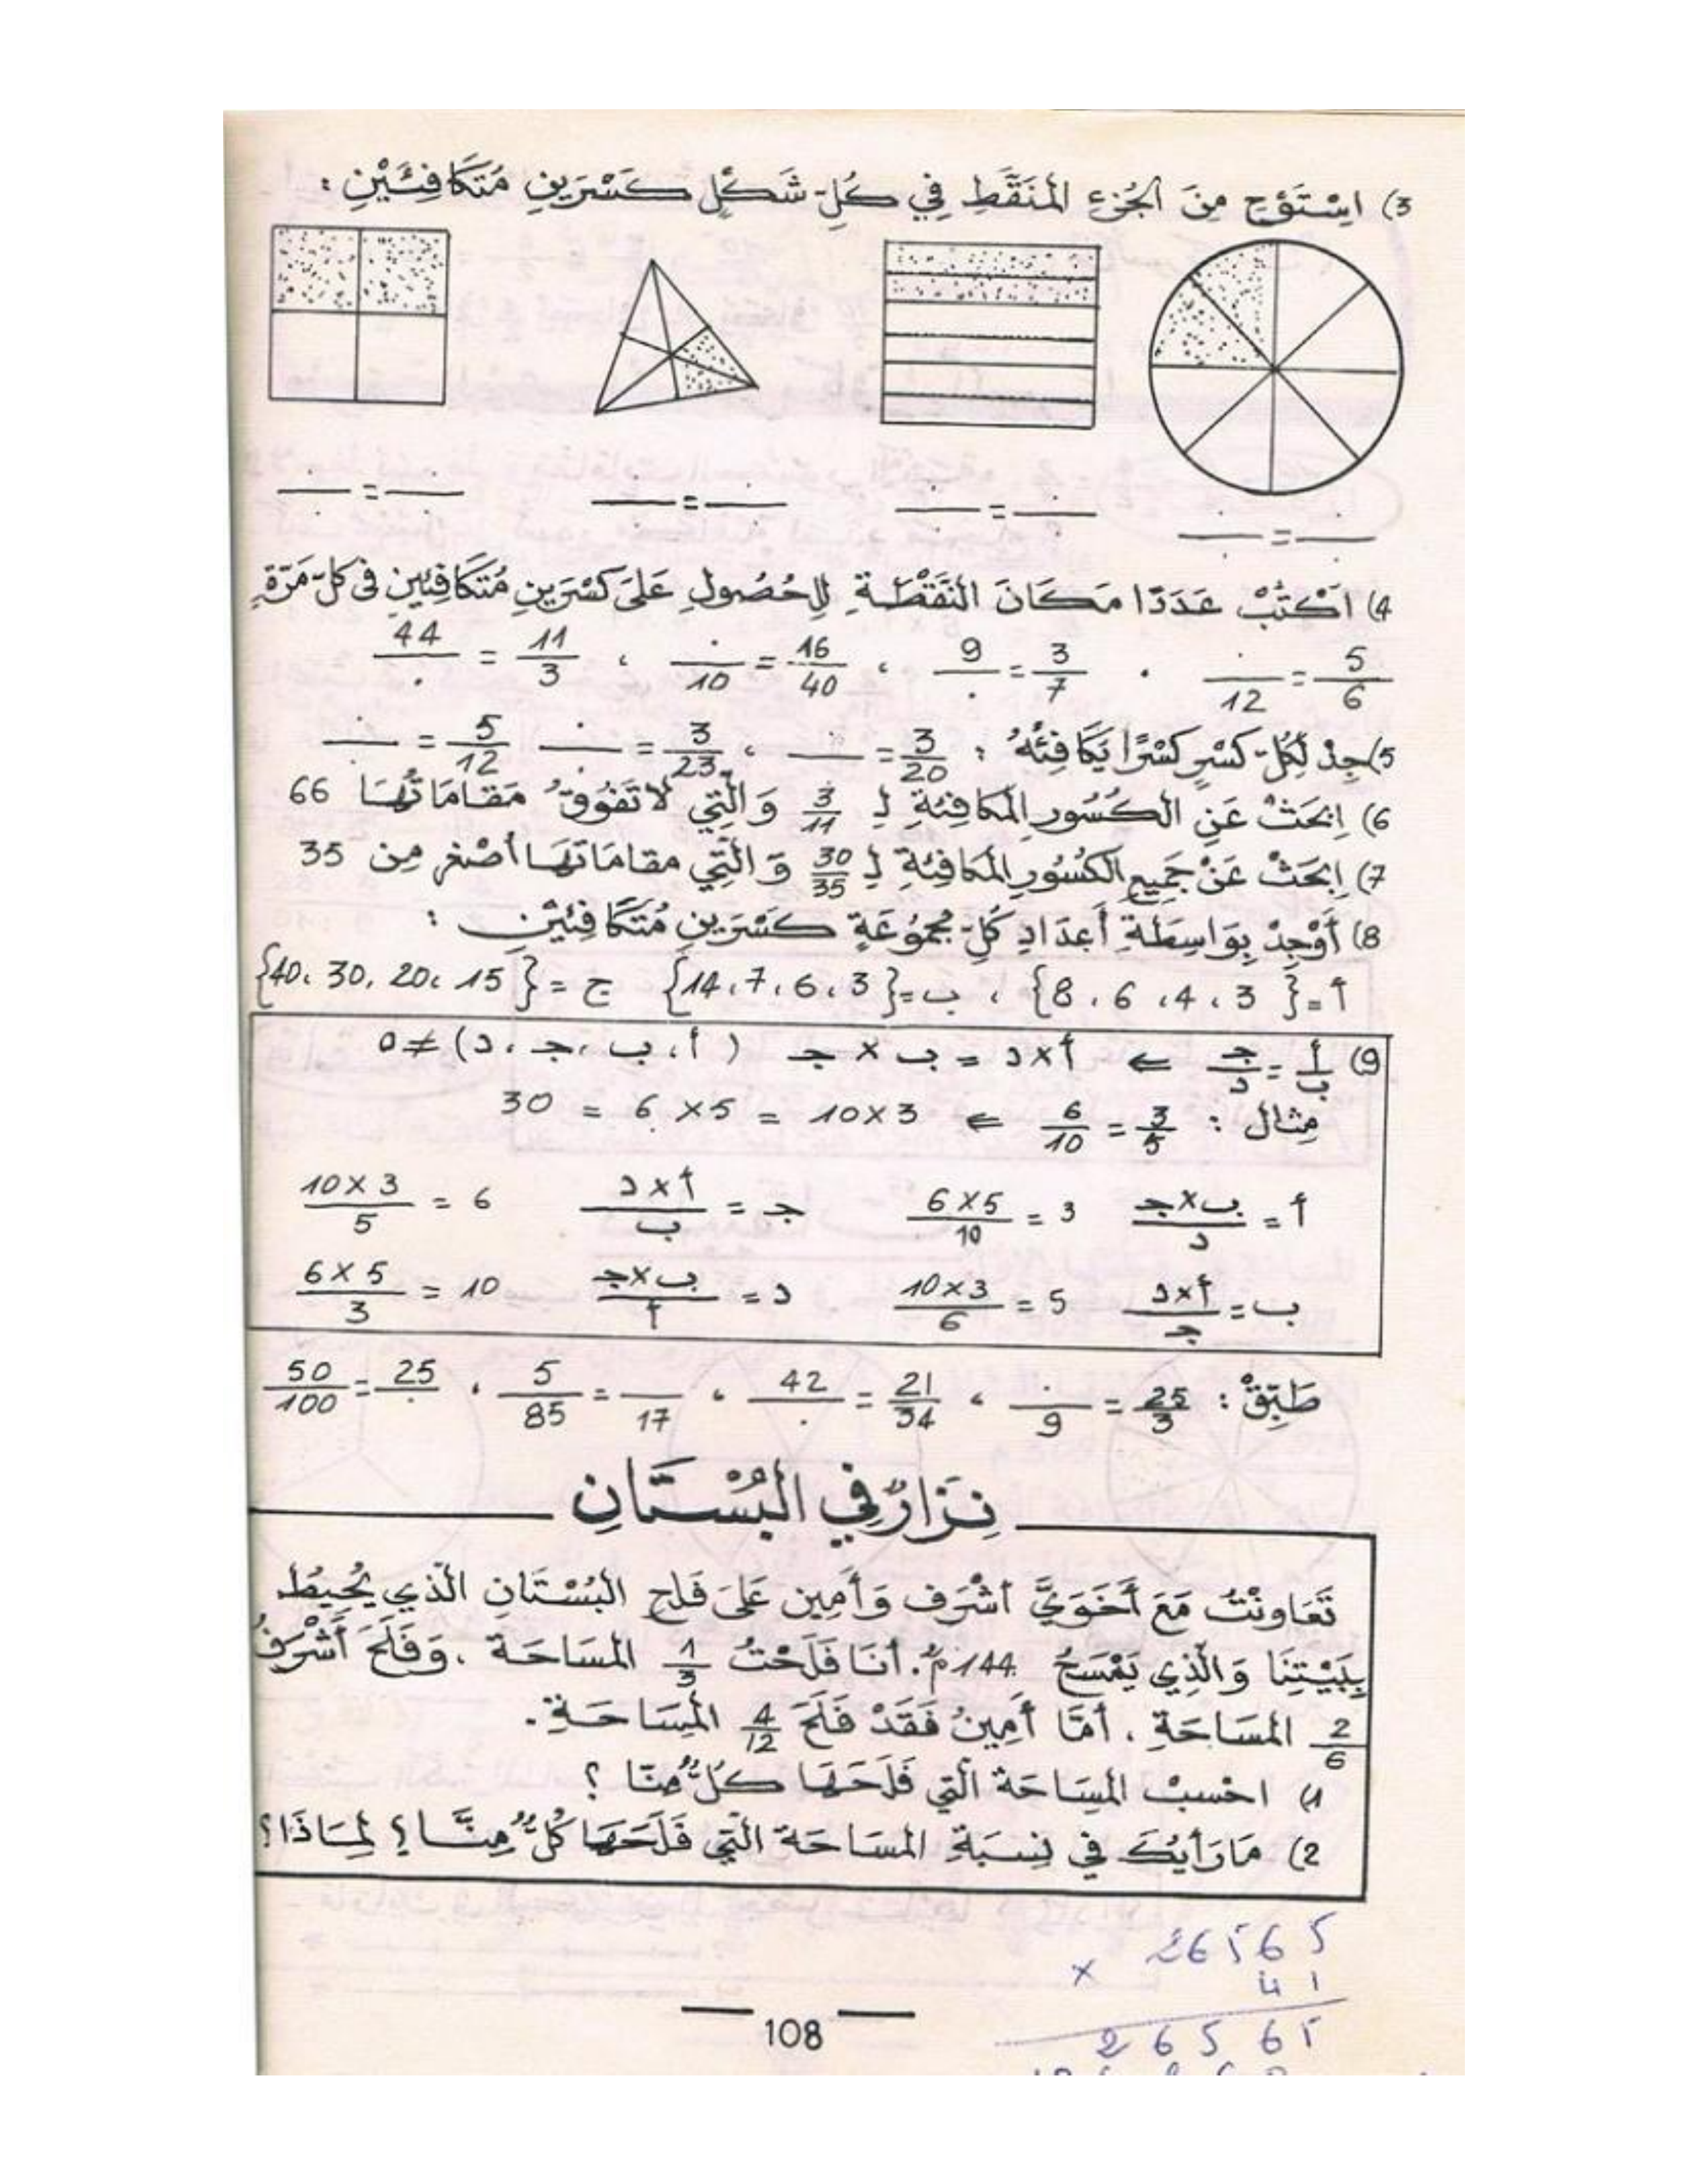 3) اِسْتَوْحِ مِنَ الجُزْءِ المُنَقَّطِ فِي كُلِّ شَكْلٍ كَسْرَيْنِ مُتَكَافِئَيْنِ :
— = —    — = —    — = —    — = —
4) اُكْتُبْ عَدَدًا مَكَانَ النُّقْطَةِ لِلحُصُولِ عَلَى كَسْرَيْنِ مُتَكَافِئَيْنِ فِي كُلِّ مَرَّةٍ
5/6 = ./12 ، 3/7 = 9/. ، 16/40 = ./10 ، 11/3 = 44/.
5) جِدْ لِكُلِّ كَسْرٍ كَسْرًا يُكَافِئُهُ : 3/20 = ./. ، 3/23 = ./. 5/12 = ./.
6) اِبْحَثْ عَنِ الكُسُورِ المُكَافِئَةِ لِـ 3/11 وَالَّتِي لَا تَفُوقُ مَقَامَاتُهَا 66
7) اِبْحَثْ عَنْ جَمِيعِ الكُسُورِ المُكَافِئَةِ لِـ 30/35 وَالَّتِي مقامَاتُهَا أصْغر مِن 35
8) أَوْجِدْ بِوَاسِطَةِ أَعدَادِ كُلِّ مَجْمُوعَةٍ كَسْرَيْنِ مُتَكَافِئَيْنِ :
أ = {3 ، 4 ، 6 ، 8} ، ب = {3 ، 6 ، 7 ، 14} ج = {15 ، 20 ، 30 ، 40}
9) أ/ب = جـ/د ⇐ أ × د = ب × جـ (أ ، ب ، جـ ، د) ≠ 0
مِثال : 3/5 = 6/10 ⇐ 3×10 = 5×6 = 30
أ = ب×جـ/د 3 = 6×5/10 جـ = أ×د/ب 6 = 10×3/5
ب = أ×د/جـ 5 = 10×3/6 د = ب×جـ/أ 10 = 6×5/3
طَبِّقْ : 25/3 = ./9 ، 21/34 = 42/. ، —/17 = 5/85 ، 25/. = 50/100
نِزَارٌ فِي البُسْتَانِ
تَعَاوَنْتُ مَعَ أَخَوَيَّ أَشْرَف وَأَمِين عَلَى فَلْحِ البُسْتَانِ الَّذِي يُحِيطُ
بِبَيْتِنَا وَالَّذِي يَمْسَحُ 144 م². أَنَا فَلَحْتُ 1/3 المَسَاحَةَ ، وَفَلَحَ أَشْرَفُ
2/6 المَسَاحَةِ ، أَمَّا أَمِينُ فَقَدْ فَلَحَ 4/12 المَسَاحَةِ .
1) احْسبْ المَسَاحَةَ الَّتِي فَلَحَهَا كُلٌّ مِنَّا ؟
2) مَا رَأْيُكَ فِي نِسْبَةِ المَسَاحَةِ الَّتِي فَلَحَهَا كُلٌّ مِنَّا ؟ لِمَاذَا ؟
26565
× 41
26565
108